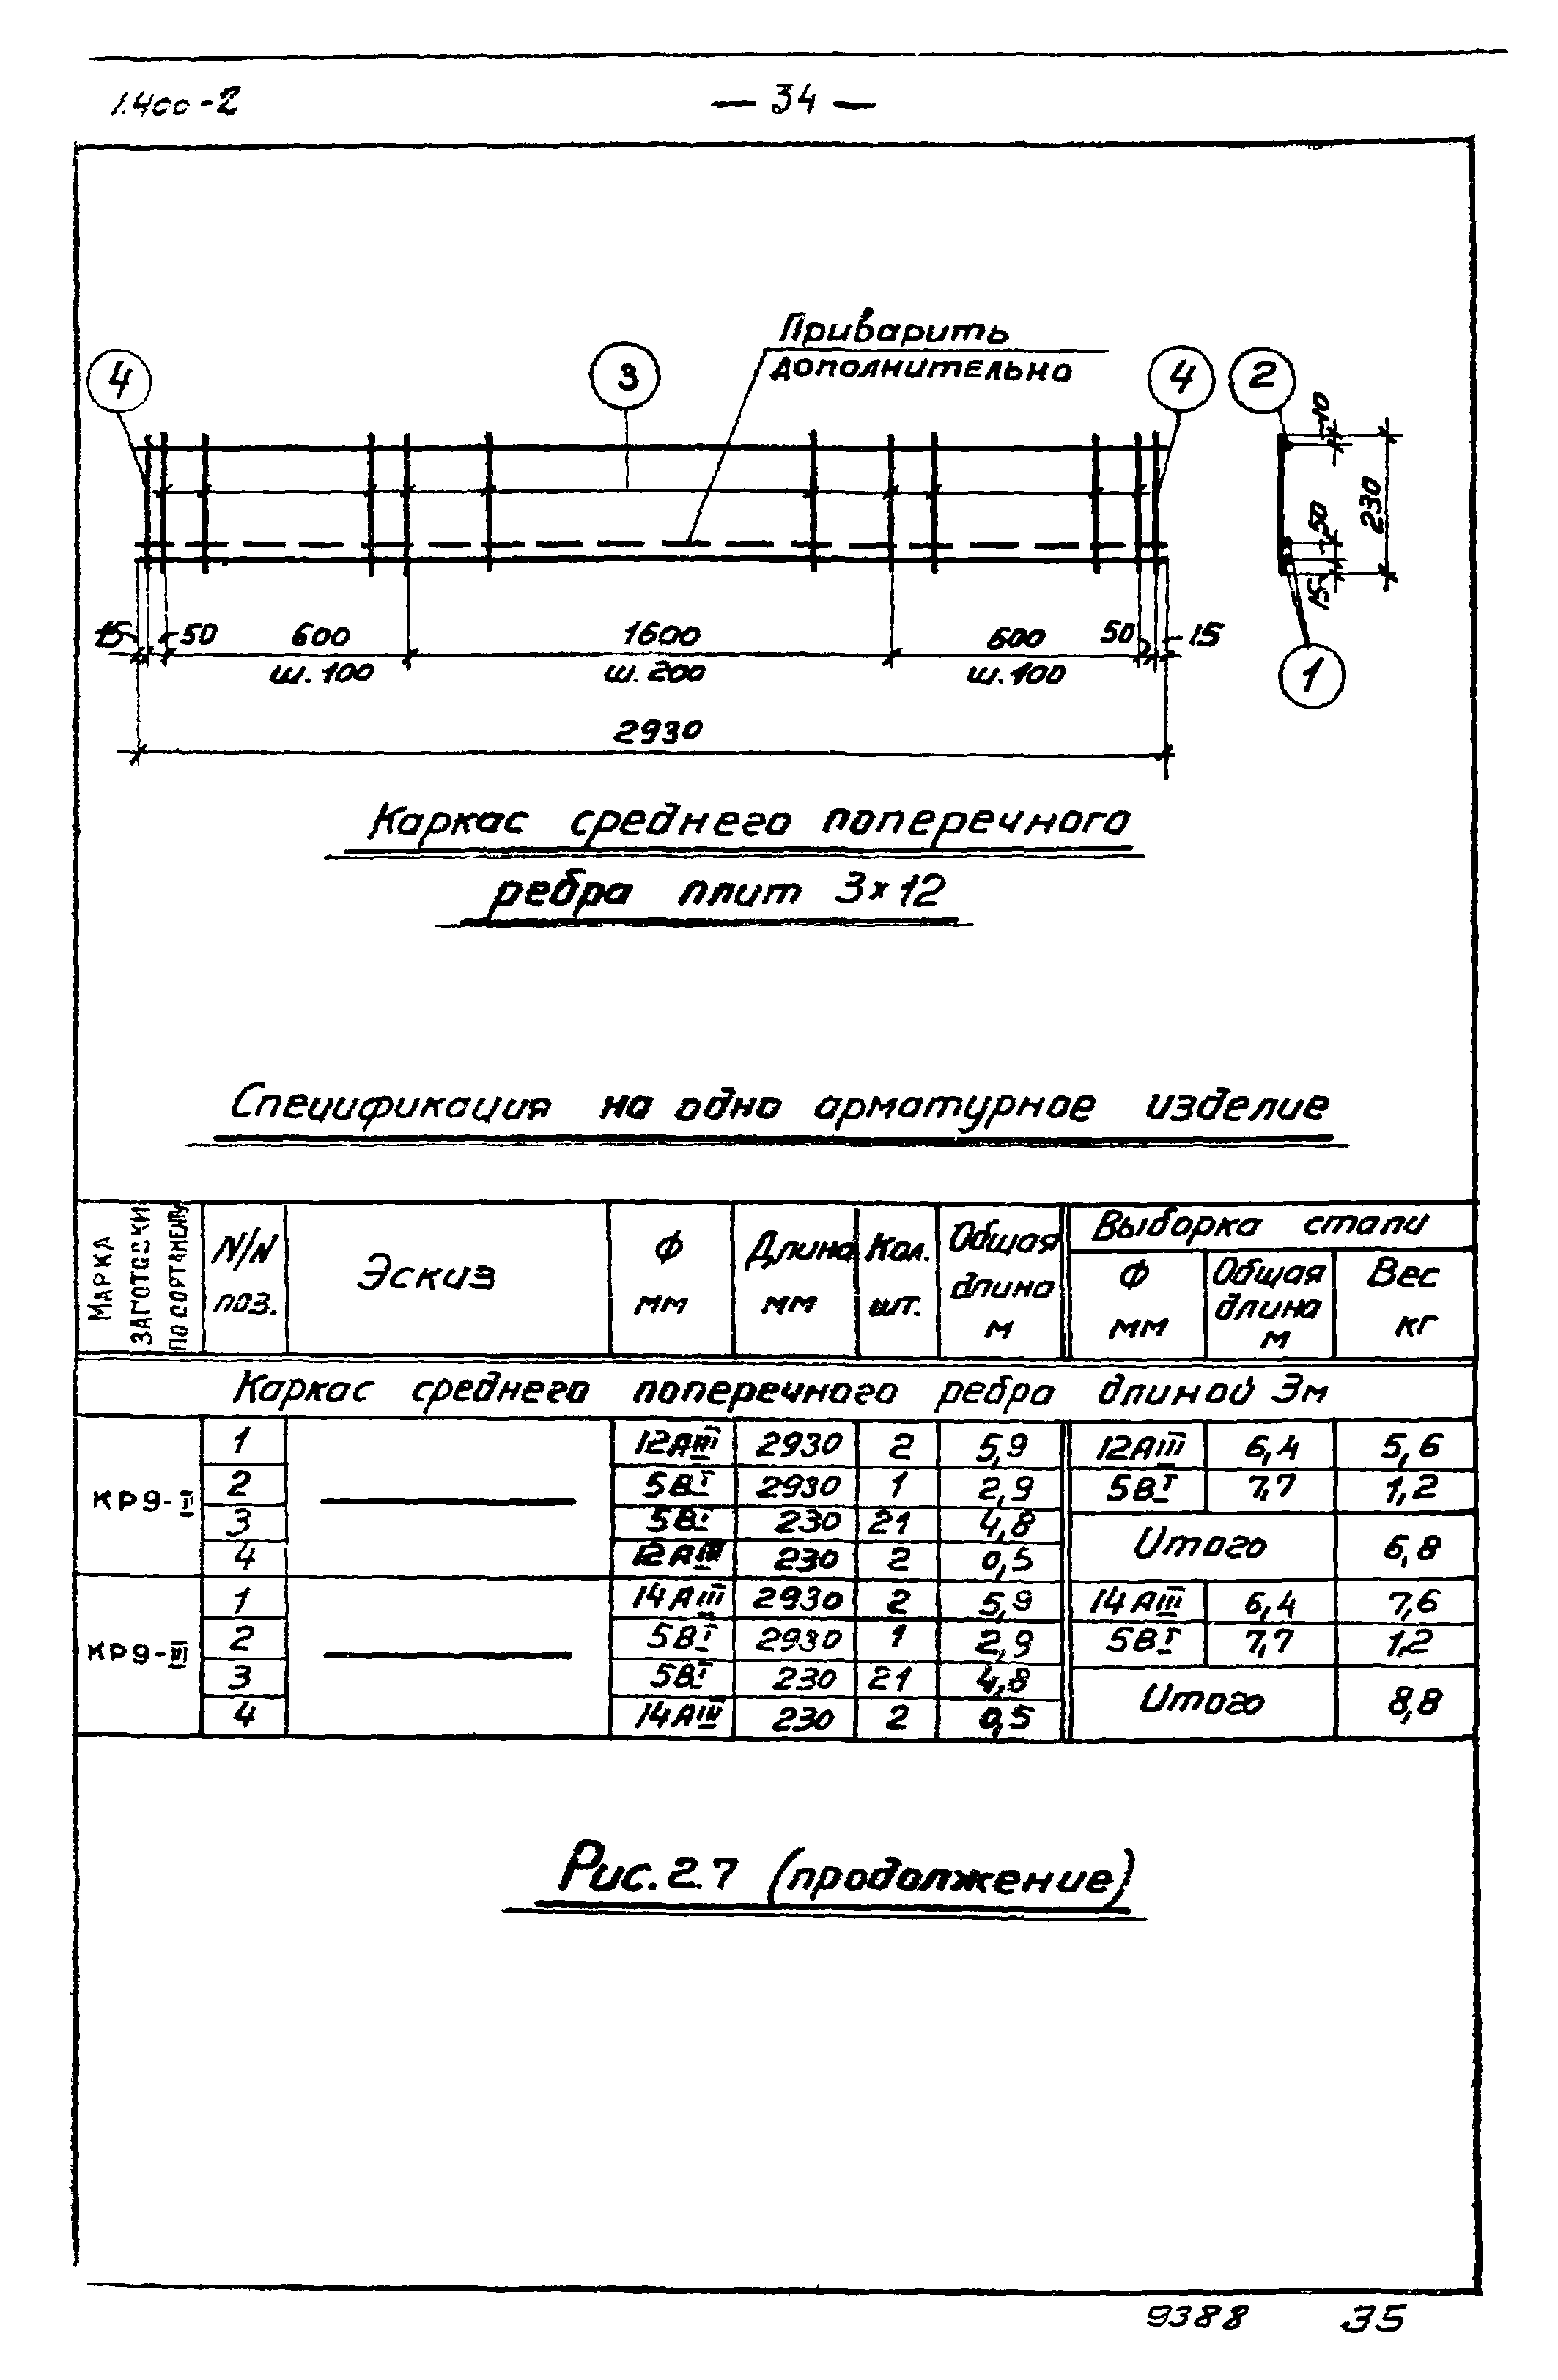 1.400-2
— 34 —
Приварить
дополнительно
4
3
4
2
10
230
50
15
1
15
50
600
ш. 100
1600
ш. 200
600
ш. 100
50
15
2930
Каркас среднего поперечного
ребра плит 3×12
Спецификация на одно арматурное изделие
Марка заготовки по сортаменту
N/N поз.
Эскиз
Ф мм
Длина мм
Кол. шт.
Общая длина м
Выборка стали
Ф мм
Общая длина м
Вес кг
Каркас среднего поперечного ребра длиной 3м
КР9-II
1 12АIII 2930 2 5,9 12АIII 6,4 5,6
2 5ВI 2930 1 2,9 5ВI 7,7 1,2
3 5ВI 230 21 4,8 Итого 6,8
4 12АIII 230 2 0,5
КР9-III
1 14АIII 2930 2 5,9 14АIII 6,4 7,6
2 5ВI 2930 1 2,9 5ВI 7,7 1,2
3 5ВI 230 21 4,8 Итого 8,8
4 14АIII 230 2 0,5
Рис. 2.7 (продолжение)
9388 35